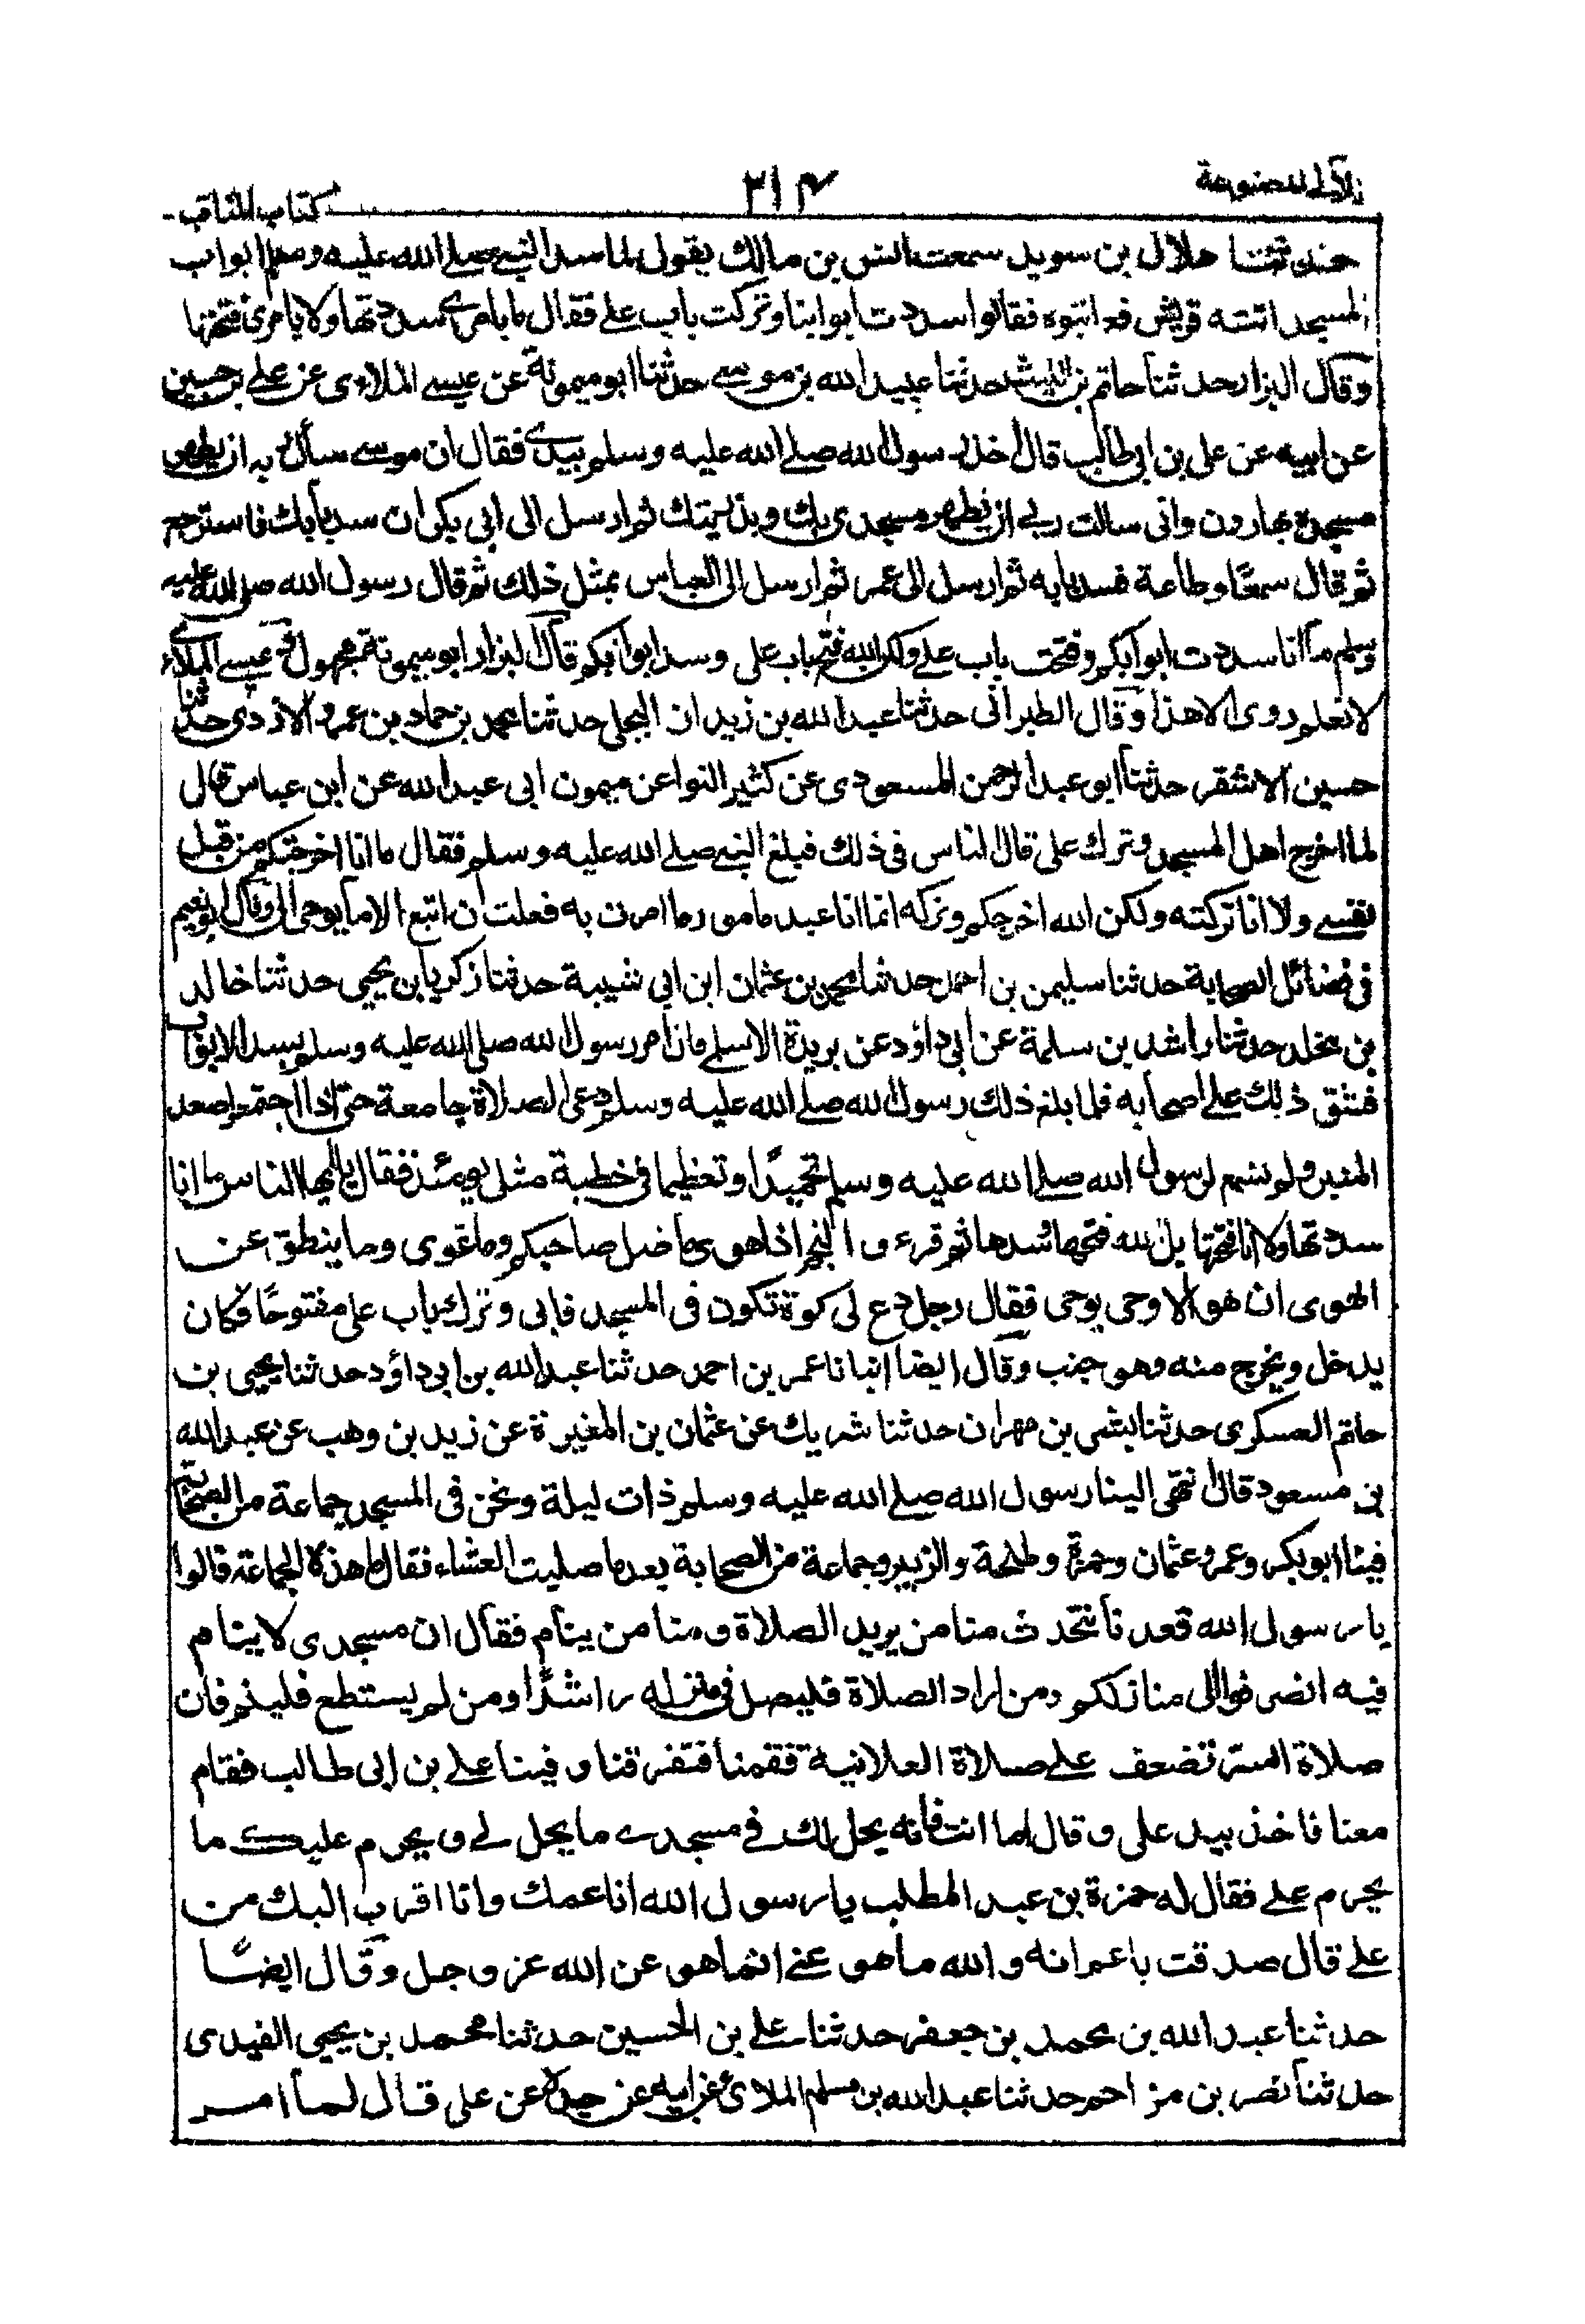 اللآلى المصنوعة
٣١٤
كتاب المناقب
حدثتنا هلال بن سويد سمعت انس بن مالك يقول لما سد النبى صلى الله عليه وسلم ابواب
المسجد اتته قريش فعاتبوه فقالوا سددت ابوابنا وتركت باب على فقال ما بامرى سددتها ولا بامرى فتحتها
وقال البزار حدثنا حاتم بن الليث حدثنا عبيد الله بن موسى حدثنا ابو ميمونة عن عيسى الملاءى عن على بن حسين
عن ابيه عن على بن ابى طالب قال اخذ رسول الله صلى الله عليه وسلم بيدى فقال ان موسى سأل ربه ان يطهر
مسجده بهارون وانى سالت ربى ان يطهر مسجدى بك وبذريتك ثم ارسل الى ابى بكر ان سد بابك فاسترجع
ثم قال سمعًا وطاعة فسد بابه ثم ارسل الى عمر ثم ارسل الى العباس بمثل ذلك ثم قال رسول الله صلى الله عليه
وسلم ما انا سددت ابوابكم وفتحت باب على ولكن الله فتح باب على وسد ابوابكم قال البزار ابو ميمونة مجهول عيسى الملاءى
لا نعلم روى الا هذا وقال الطبرانى حدثنا عبد الله بن زيدان البجلى حدثنا محمد بن حماد بن عمرو الازدى حدثنا
حسين الاشقر حدثنا ابو عبد الرحمن المسعودى عن كثير النوا عن ميمون ابى عبد الله عن ابن عباس قال
لما اخرج اهل المسجد وترك على قال الناس فى ذلك فبلغ النبى صلى الله عليه وسلم فقال ما انا اخرجتكم من قبل
نفسى ولا انا تركته ولكن الله اخرجكم وتركه انما انا عبد مامور ما امرت به فعلت ان اتبع الا ما يوحى الى وقال ابو نعيم
فى فضائل الصحابة حدثنا سليمن بن احمد حدثنا محمد بن عثمان ابن ابى شيبة حدثنا زكريا بن يحيى حدثنا خالد
بن مخلد حدثنا راشد بن سلمة عن ابى داؤد عن بريدة الاسلمى قال امر رسول الله صلى الله عليه وسلم بسد الابواب
فشق ذلك على اصحابه فلما بلغ ذلك رسول الله صلى الله عليه وسلم دعى الصلاة جامعة حتى اذا اجتمعوا صعد
المنبر ولم نسمع لرسول الله صلى الله عليه وسلم تحميدًا وتعظيما فى خطبة مثل يومئذ فقال يا ايها الناس ما انا
سددتها ولا انا فتحتها بل الله فتحها وسدها ثم قرء والنجم اذا هوى ما ضل صاحبكم وما غوى وما ينطق عن
الهوى ان هو الا وحى يوحى فقال رجل دع لى كوة تكون فى المسجد فابى وترك باب على مفتوحًا فكان
يدخل ويخرج منه وهو جنب وقال ايضا انبانا عمر بن احمد حدثنا عبد الله بن ابى داؤد حدثنا يحيى بن
حاتم العسكرى حدثنا بشر بن مهران حدثنا شريك عن عثمان بن المغيرة عن زيد بن وهب عن عبد الله
بن مسعود قال انتهى الينا رسول الله صلى الله عليه وسلم ذات ليلة ونحن فى المسجد جماعة من الصحابة
فينا ابو بكر وعمر وعثمان وحمزة وطلحة والزبير وجماعة من الصحابة بعد ما صليت العشاء فقال ما هذه الجماعة قالوا
يا رسول الله قعدنا نتحدث منا من يريد الصلاة ومنا من ينام فقال ان مسجدى لا ينام
فيه انصرفوا الى منازلكم ومن اراد الصلاة فليصل فى منزله راشدًا ومن لم يستطع فلينم فان
صلاة السر تضعف على صلاة العلانية فقمنا فتفرقنا وفينا على بن ابى طالب فقام
معنا فاخذ بيد على وقال اما انت فانه يحل لك فى مسجدى ما يحل لى ويحرم عليك ما
يحرم على فقال له حمزة بن عبد المطلب يا رسول الله انا عمك وانا اقرب اليك من
على قال صدقت يا عم انه والله ما هو عنى انما هو عن الله عز وجل وقال ايضًا
حدثنا عبد الله بن محمد بن جعفر حدثنا على بن الحسين حدثنا محمد بن يحيى الفيدى
حدثنا نصر بن مزاحم حدثنا عبد الله بن مسلم الملائى عن ابيه عن عن على قال لما امر